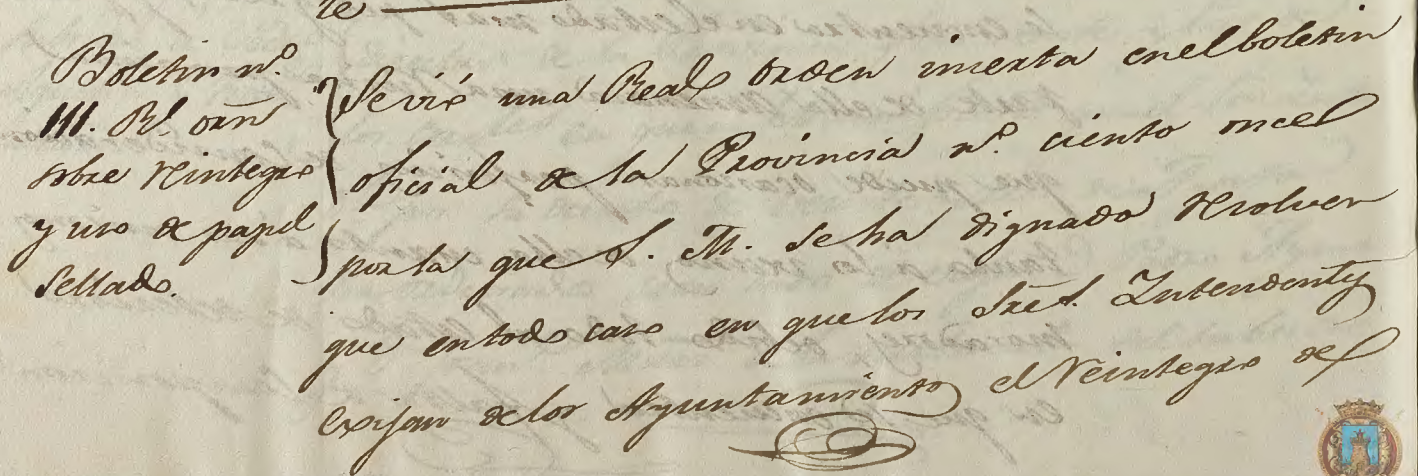 te
Boletin nº.
111. Rl. orñ
sobre reintegro
y uso de papel
Sellado.
Se vió una Real orden inserta en el boletin
oficial de la Provincia nº. ciento once
por la que S. M. se ha dignado resolver
que en todo caso en que los Sres. Intendentes
exijan de los Ayuntamientos el reintegro del